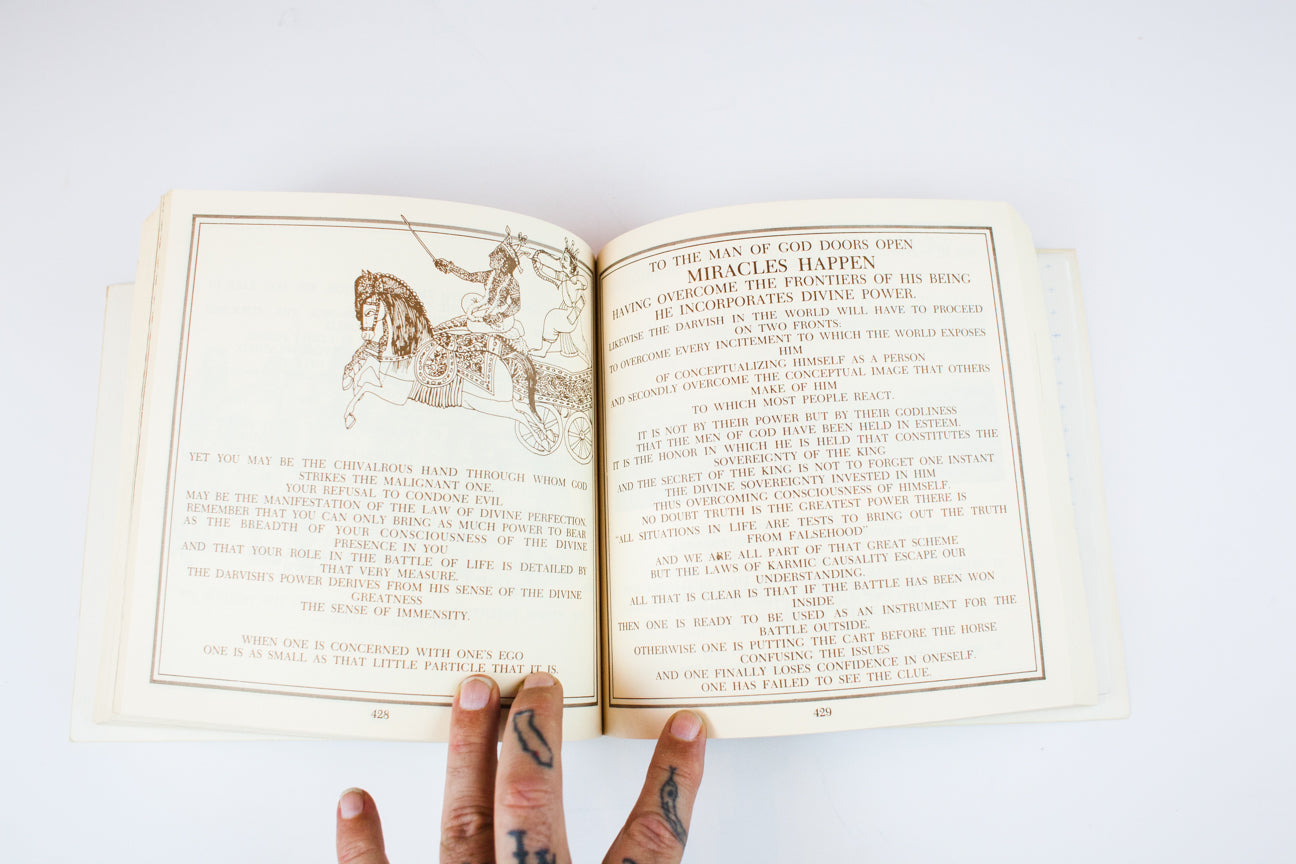 YET YOU MAY BE THE CHIVALROUS HAND THROUGH WHOM GOD
STRIKES THE MALIGNANT ONE.
YOUR REFUSAL TO CONDONE EVIL
MAY BE THE MANIFESTATION OF THE LAW OF DIVINE PERFECTION.
REMEMBER THAT YOU CAN ONLY BRING AS MUCH POWER TO BEAR
AS THE BREADTH OF YOUR CONSCIOUSNESS OF THE DIVINE
PRESENCE IN YOU
AND THAT YOUR ROLE IN THE BATTLE OF LIFE IS DETAILED BY
THAT VERY MEASURE.
THE DARVISH'S POWER DERIVES FROM HIS SENSE OF THE DIVINE
GREATNESS
THE SENSE OF IMMENSITY.
WHEN ONE IS CONCERNED WITH ONE'S EGO
ONE IS AS SMALL AS THAT LITTLE PARTICLE THAT IT IS.
428
TO THE MAN OF GOD DOORS OPEN
MIRACLES HAPPEN
HAVING OVERCOME THE FRONTIERS OF HIS BEING
HE INCORPORATES DIVINE POWER.
LIKEWISE THE DARVISH IN THE WORLD WILL HAVE TO PROCEED
ON TWO FRONTS:
TO OVERCOME EVERY INCITEMENT TO WHICH THE WORLD EXPOSES
HIM
OF CONCEPTUALIZING HIMSELF AS A PERSON
AND SECONDLY OVERCOME THE CONCEPTUAL IMAGE THAT OTHERS
MAKE OF HIM
TO WHICH MOST PEOPLE REACT.
IT IS NOT BY THEIR POWER BUT BY THEIR GODLINESS
THAT THE MEN OF GOD HAVE BEEN HELD IN ESTEEM.
IT IS THE HONOR IN WHICH HE IS HELD THAT CONSTITUTES THE
SOVEREIGNTY OF THE KING
AND THE SECRET OF THE KING IS NOT TO FORGET ONE INSTANT
THE DIVINE SOVEREIGNTY INVESTED IN HIM
THUS OVERCOMING CONSCIOUSNESS OF HIMSELF.
NO DOUBT TRUTH IS THE GREATEST POWER THERE IS
"ALL SITUATIONS IN LIFE ARE TESTS TO BRING OUT THE TRUTH
FROM FALSEHOOD"
AND WE ARE ALL PART OF THAT GREAT SCHEME
BUT THE LAWS OF KARMIC CAUSALITY ESCAPE OUR
UNDERSTANDING.
ALL THAT IS CLEAR IS THAT IF THE BATTLE HAS BEEN WON
INSIDE
THEN ONE IS READY TO BE USED AS AN INSTRUMENT FOR THE
BATTLE OUTSIDE.
OTHERWISE ONE IS PUTTING THE CART BEFORE THE HORSE
CONFUSING THE ISSUES
AND ONE FINALLY LOSES CONFIDENCE IN ONESELF.
ONE HAS FAILED TO SEE THE CLUE.
429